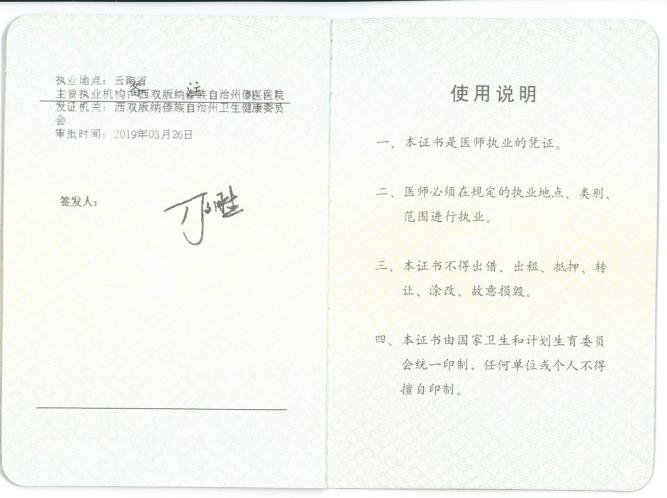 执业地点：云南省
备 注
主要执业机构：西双版纳傣族自治州傣医医院
发证机关：西双版纳傣族自治州卫生健康委员
会
审批时间：2019年03月26日
签发人：
使用说明
一、本证书是医师执业的凭证。
二、医师必须在规定的执业地点、类别、
范围进行执业。
三、本证书不得出借、出租、抵押、转
让、涂改、故意损毁。
四、本证书由国家卫生和计划生育委员
会统一印制，任何单位或个人不得
擅自印制。